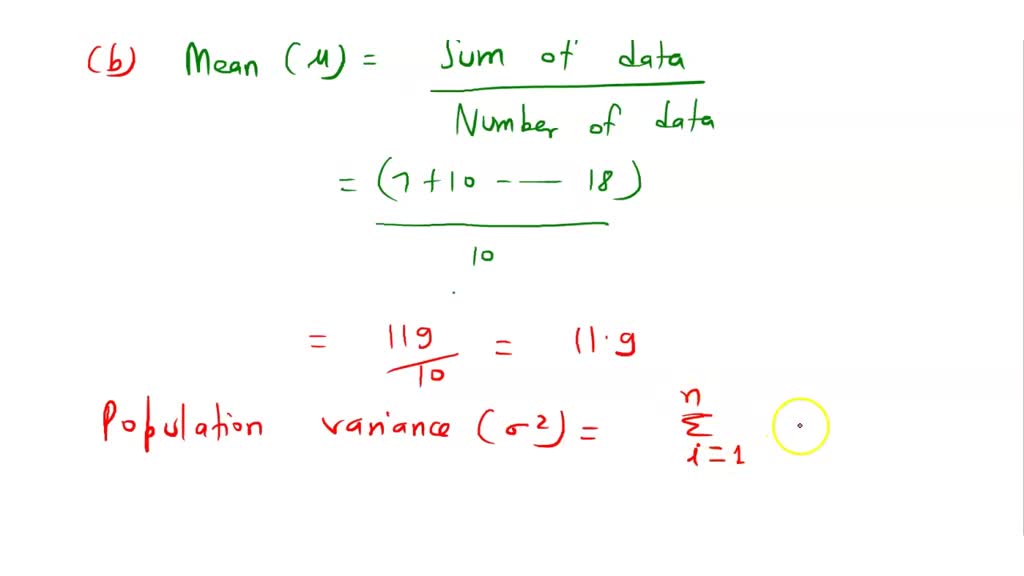 (b) Mean (μ) = Sum of data
Number of data
= (7 + 10 -- — 18)
10
= 119
10
= 11.9
Population variance (σ²) = n
Σ
i = 1